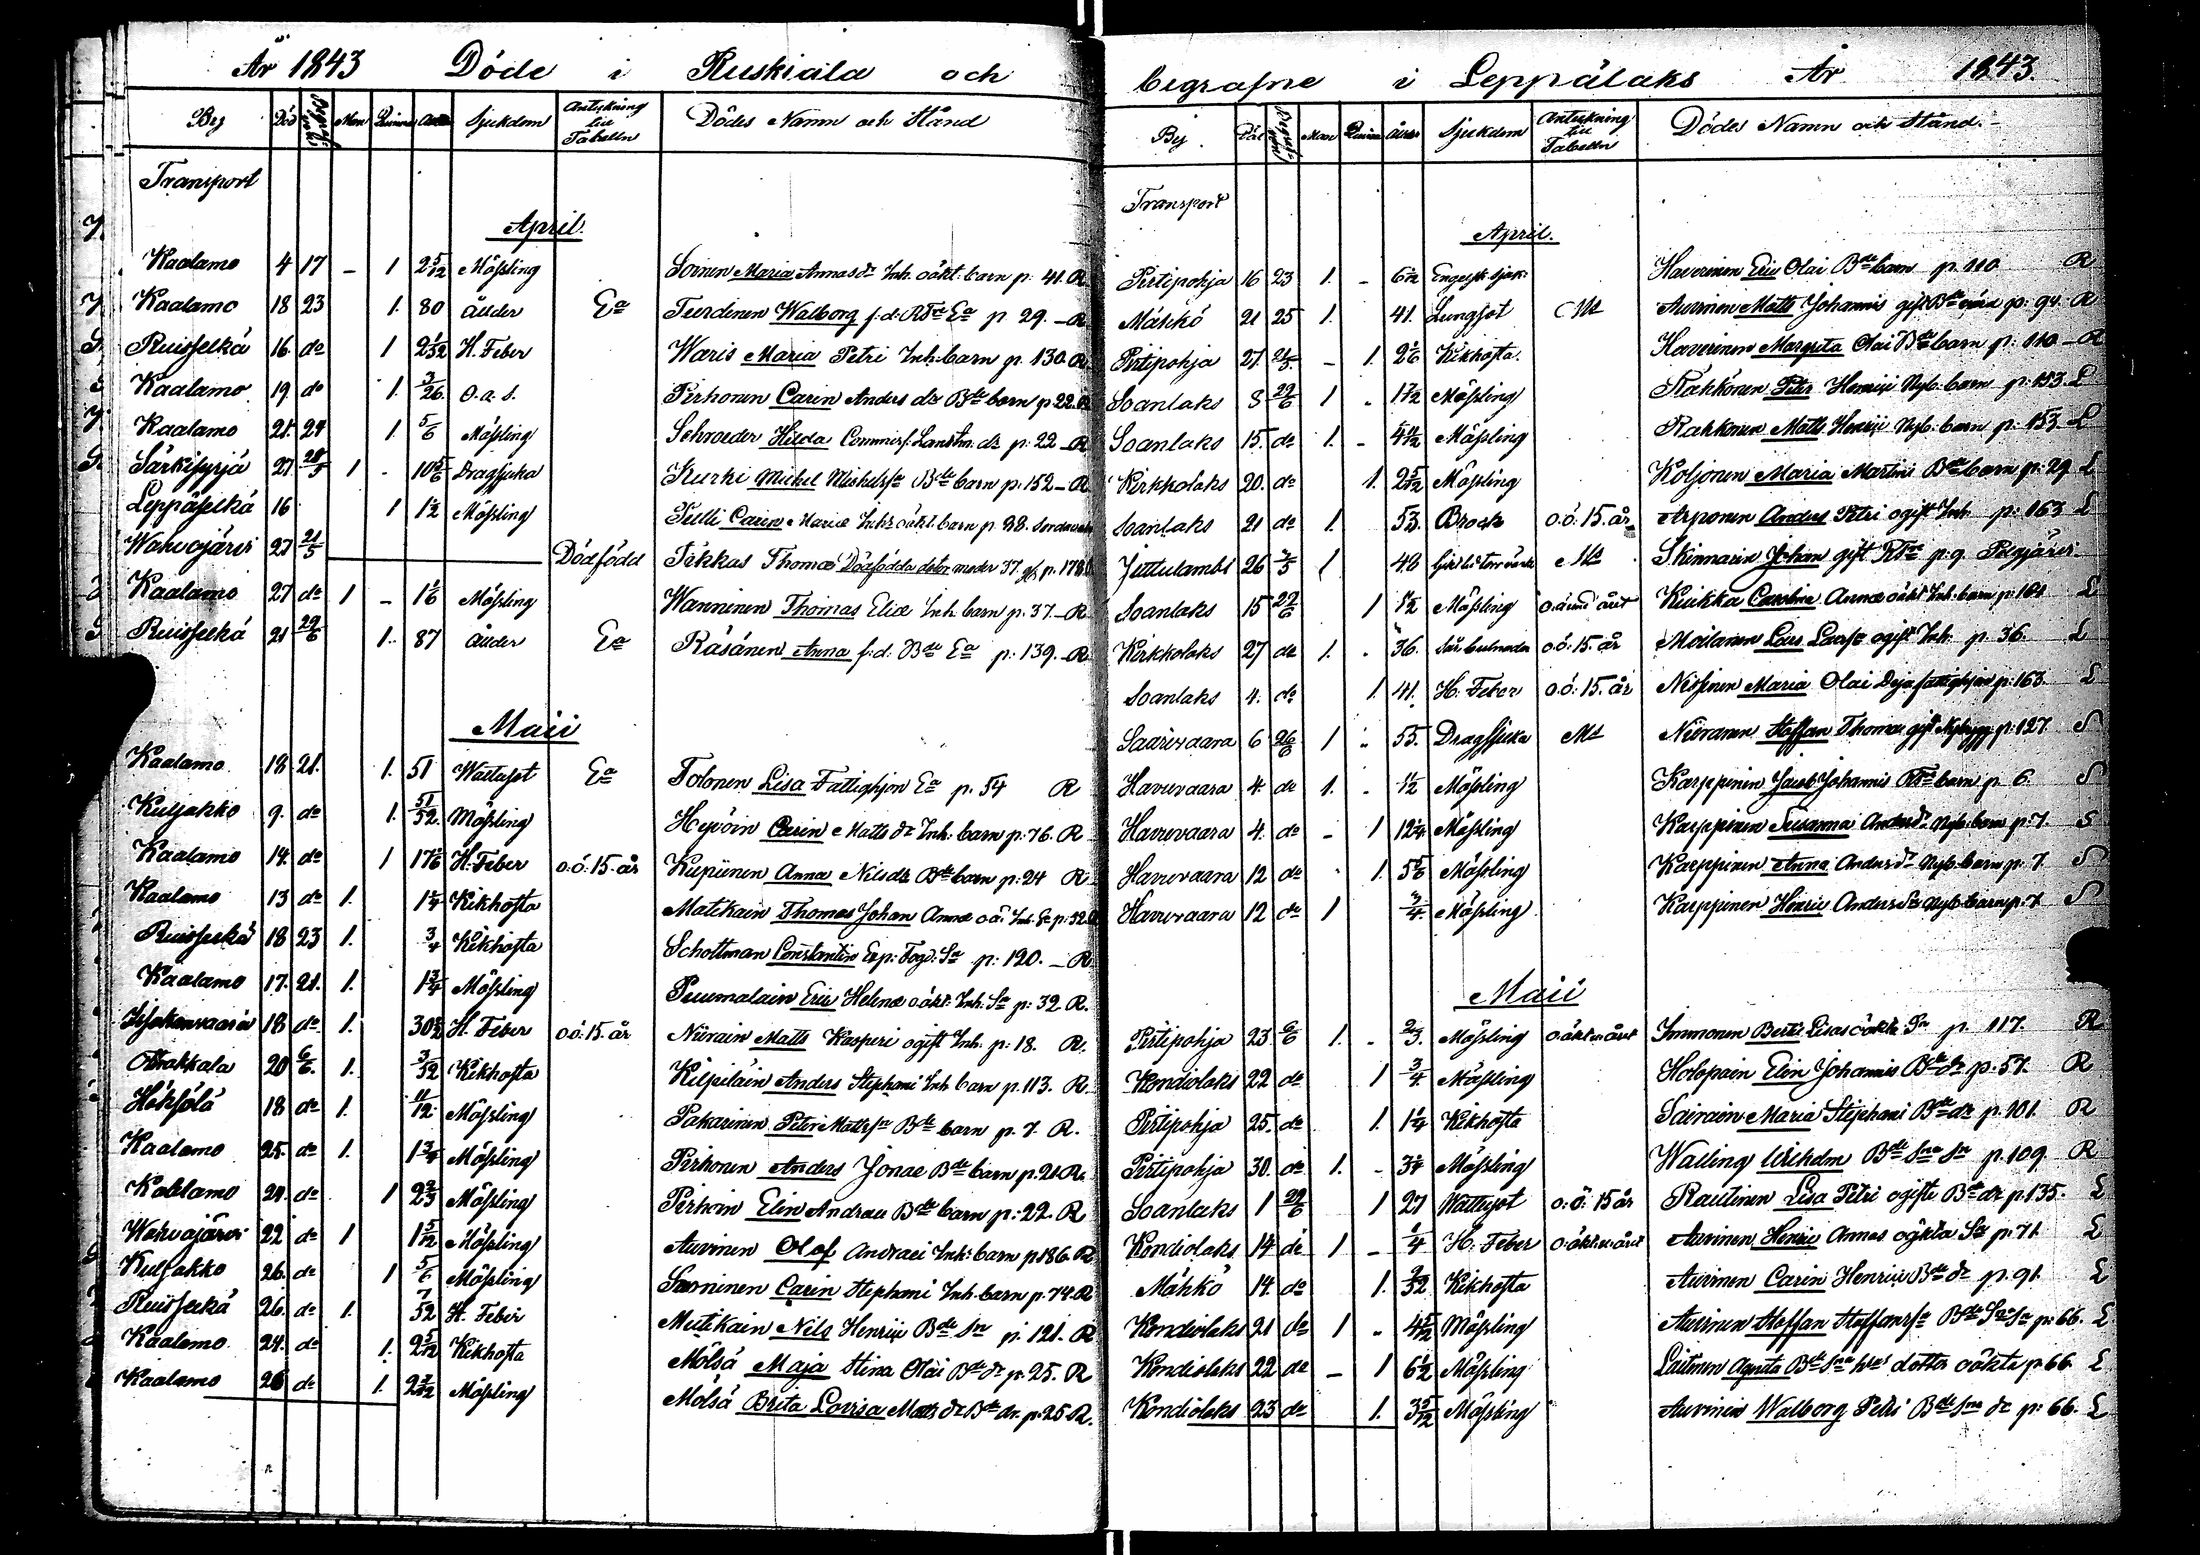 År 1843 Döde i Ruskiala och
By Död Begrafne Man Qvinna Ålder Sjukdom Anteckning till Tabellen Dödes Namn och Stånd
Transport
April.
Kaalamo 4 17 - 1 2 5/12 Mässling Soinen Maria Annas dr Inh. oäkt. barn p. 41. R
Kaalamo 18 23 1. 80 Ålder Ea Turdinen Walborg f.d. Ea p 29. R
Ruisselkä 16. do 1 H. Feber Waris Maria Petri Inh. barn p. 130. R
Kaalamo 19. do 1. 3/26 o.a.s. Pirhonen Carin Anders dr Bde barn p. 22. R
Kaalamo 21. 24 1. 5/6 Mässling Schroeder Hilda Commiss. Landtm. dr p: 22 R
Särkisyrjä 27 28/5 1 - 10 5/6 Dragsjuka Kurki Michel Michelss. Bde barn p. 152 - R
Leppäselkä 16 1 1/2 Mässling Pulli Carin Mariæ Inh:s oäkt. barn p. 88.
Wahvajärvi 27 21/5 Dödfödd Tikkas Thomæ Dödfödda dotter moder 37.
Kaalamo 27 do 1 - 1 1/6 Mässling Wanninen Thomas Eliæ Inh. barn p. 37. R
Ruisselkä 21 29/6 1. 87 Ålder Ea Räsänen Anna f:d: Bde Ea p: 139. R
Maii
Kaalamo 18. 21. 1. 51 Wattusot Ea Tolonen Lisa Fattighjon Ea p. 54 R
Kuljakko 9. do 1. 51/52. Mässling Hypöin Carin Matts dr Inh. barn p: 76. R
Kaalamo 14. do 1 17 5/6 H. Feber o.ö: 15. år Kupiinen Anna Nils dr Bde barn p: 24 R
Kaalamo 13 do 1. 1 1/4 Kikhosta Matikain Thomas Johan Annæ oä. Inh.
Ruisselkä 18 23 1. 3/4 Kikhosta Schottman Constantin Exp: Fogd: Sn p: 120. R
Kaalamo 17. 21. 1. 1 3/4 Mässling Puumalain Eric Helenæ oäkt: Inh: Sn p: 32. R.
Ihakanvaara 18 do 1. H. Feber o.ö: 15. år Niirain Matts Kasperi ogift Inh. p: 18. R.
Otrakkala 20 6/6. 1. 3/52 Kikhosta Kilpiläin Anders Stephani Inh barn p. 113. R.
Höksölä 18 do 1. 11/12. Mässling Pakarinen Peter Matts sn Bde barn p. 7. R.
Kaalamo 25. do 1. 1 3/4 Mässling Pirhonen Anders Jonae Bde barn p. 21. R.
Kaalamo 24. do 1 2 2/3 Mässling Pirhoin Elin Andraei Bde barn p: 22. R
Wahvajärvi 22 do 1 1 5/12 Mässling Auvinen Olof Andraei Inh: barn p 186. R
Kuljakko 26. do 1 5/6 Mässling Sarninen Carin Stephani Inh. barn p. 74. R
Ruisselkä 26. do 1. 7/52 H. Feber Mutikain Nils Henrici Bde sn p. 121. R
Kaalamo 24. do 1. 2 5/12 Kikhosta Mölsä Maja Stina Olai Bde dr p. 25. R
Kaalamo 26 do 1. Mässling Mölsä Brita Lovisa Matts dr Bde dr. p. 25 R.
begrafne i Leppälaks År 1843.
By Död Begrafne Man Qvinna Ålder Sjukdom Anteckning till Tabellen Dödes Namn och Stånd.
Transport
April.
Pirtipohja 16 23 1. - Engelsk sjuk: Haverinen Eric Olai Bde barn p. 110 R
Mähkö 21 25 1. 41. Lungsot Ms Auvinen Matts Johannis gift Bde p: 94. R
Pirtipohja 27. 1. 2 1/6 Kikhosta. Haverinen Margreta Olai Bde barn p: 110 R
Soanlaks 8 29/6 1 Mässling Rakkonen Peter Henrici Nyb. barn p: 153. L
Soanlaks 15. do 1. - Mässling Rakkonen Matts Henrici Nyb. barn p: 153 L
Kirkkolaks 20. do 1. 2 5/12 Mässling Koljonen Maria Martini Bde barn p: 29. L
Soanlaks 21 do 1. 53. Brock o:ö: 15. år Arponen Anders Petri ogift Inh. p: 163 L
Juttulambi 26 1 48 Ms Skinnarin Johan gift p. 9. Pelgjärvi
Soanlaks 15 29/6 1 1 1/2 Mässling Kuikka Carolina Annæ oäkt Inh. barn p: 164 L
Kirkkolaks 27 do 1. 36. o:ö: 15. år Moilanen Lars ogift Inh. p. 36. L
Soanlaks 4. do 1. 41. H. Feber o:ö: 15. år Nissinen Maria Olai Deja fattighjon p: 163. L
Saarivaara 6 26/6 1 55. Dragsjuka Ms Niiranen Staffan Thomæ gift Nybygg. p: 127. S
Havuvaara 4 do 1. 1 1/2 Mässling Karppinen Jacob Johannis barn p. 6. S
Havuvaara 4. do - 1 12 1/4 Mässling Karppinen Susanna Anders dr Nyb. barn p: 7. S
Havuvaara 12 do 1. 5 5/6 Mässling Karppinen Anna Anders dr Nyb. barn p: 7. S
Havuvaara 12 do 1 3/4. Mässling Karppinen Henric Anders Sn Nyb. barn p: 7. S
Maii
Pirtipohja 23 6/6 1. 2/3. Mässling Immonen Bertil Lisas oäkta Sn p. 117. R
Kondiolaks 22 do 1 3/4 Mässling Holopain Elin Johannis Bde dr p. 57. R
Pirtipohja 25. do 1. 1 1/4 Kikhosta Sairain Maria Stephani Bde dr p. 101. R
Pirtipohja 30. do 1. - 3 1/4 Mässling Walling Wilhelm Bde sns sn p. 109. R
Soanlaks 1 29/6 1 27 Wattusot o:ö: 15 år Rautinen Lisa Petri ogifte Bde dr p. 135. L
Kondiolaks 14 do 1 - 1/4 H. Feber Auvinen Henric Annas oäkta Sn p. 71 L
Mähkö 14. do 1. Kikhosta Auvinen Carin Henrici Bde dr p. 91. L
Kondiolaks 21 do 1 Mässling Auvinen Staffan Staffans sn Bde Sns Sn p: 66. L
Kondiolaks 22 do - 1 6 1/2 Mässling Laitinen Agneta Bde dotter oäkta p. 66. L
Kondiolaks 23 do 1. 3 5/12 Mässling Auvinen Walborg Petri Bde sns dr p: 66. L